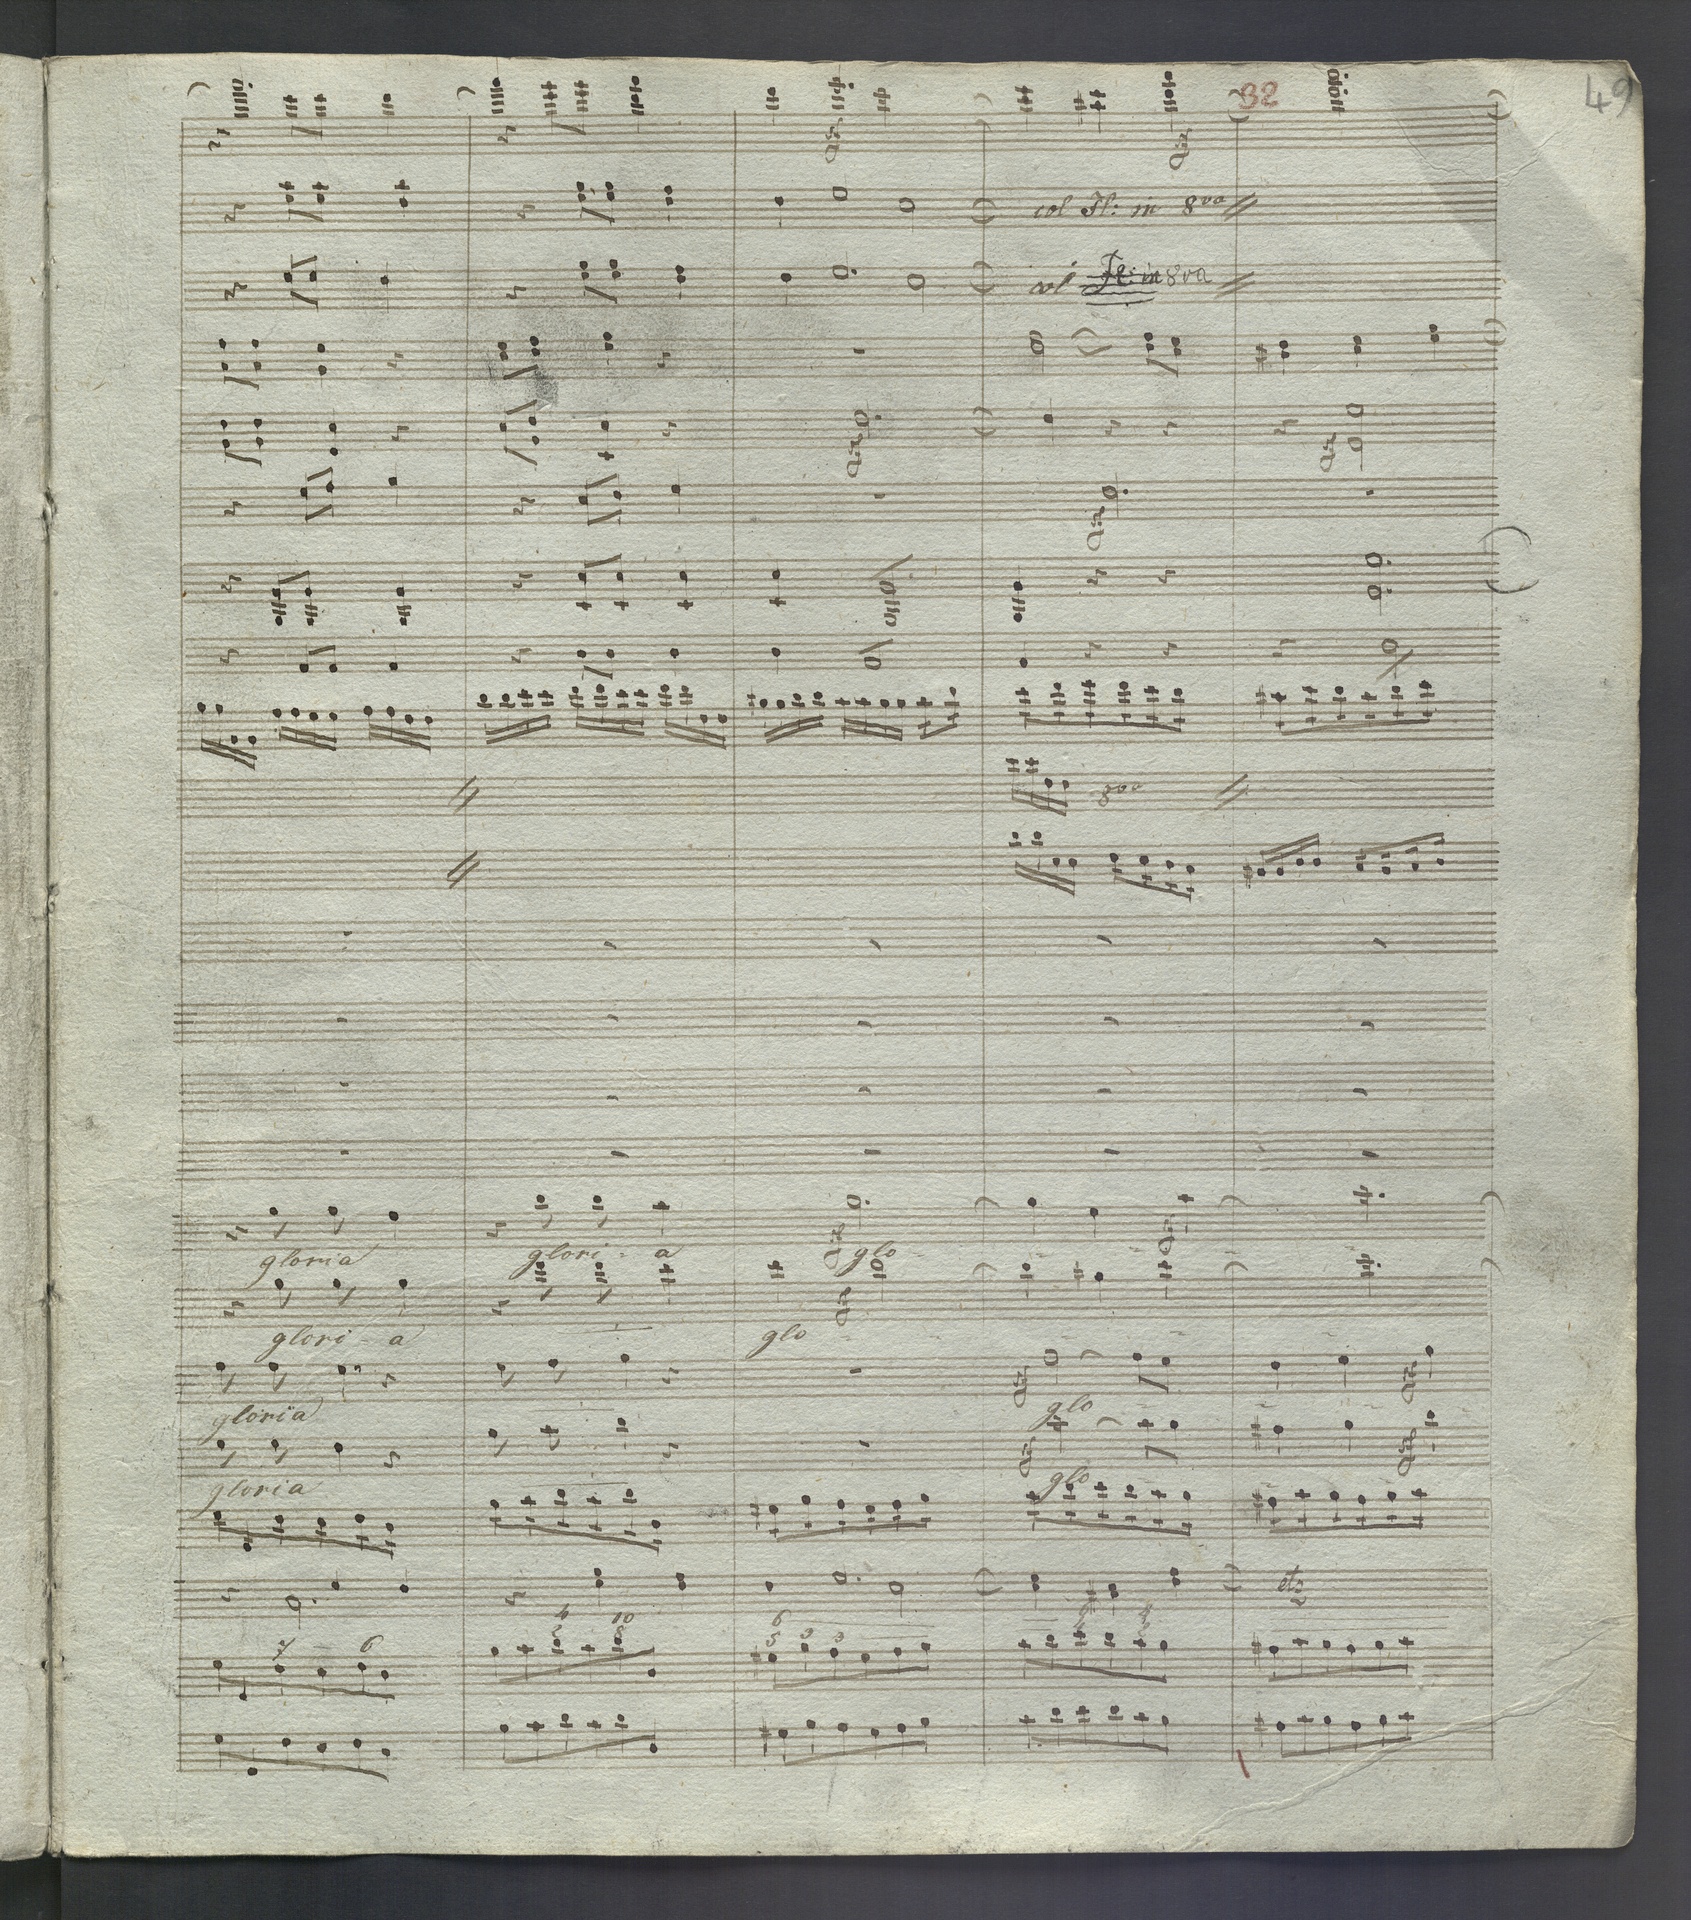 32 49
col Fl: in 8va
col Fl: in 8va
8va
gloria glori - a glo -
glori - a glo
gloria glo
gloria glo
etc
4 10 6 4
7 6 5 8